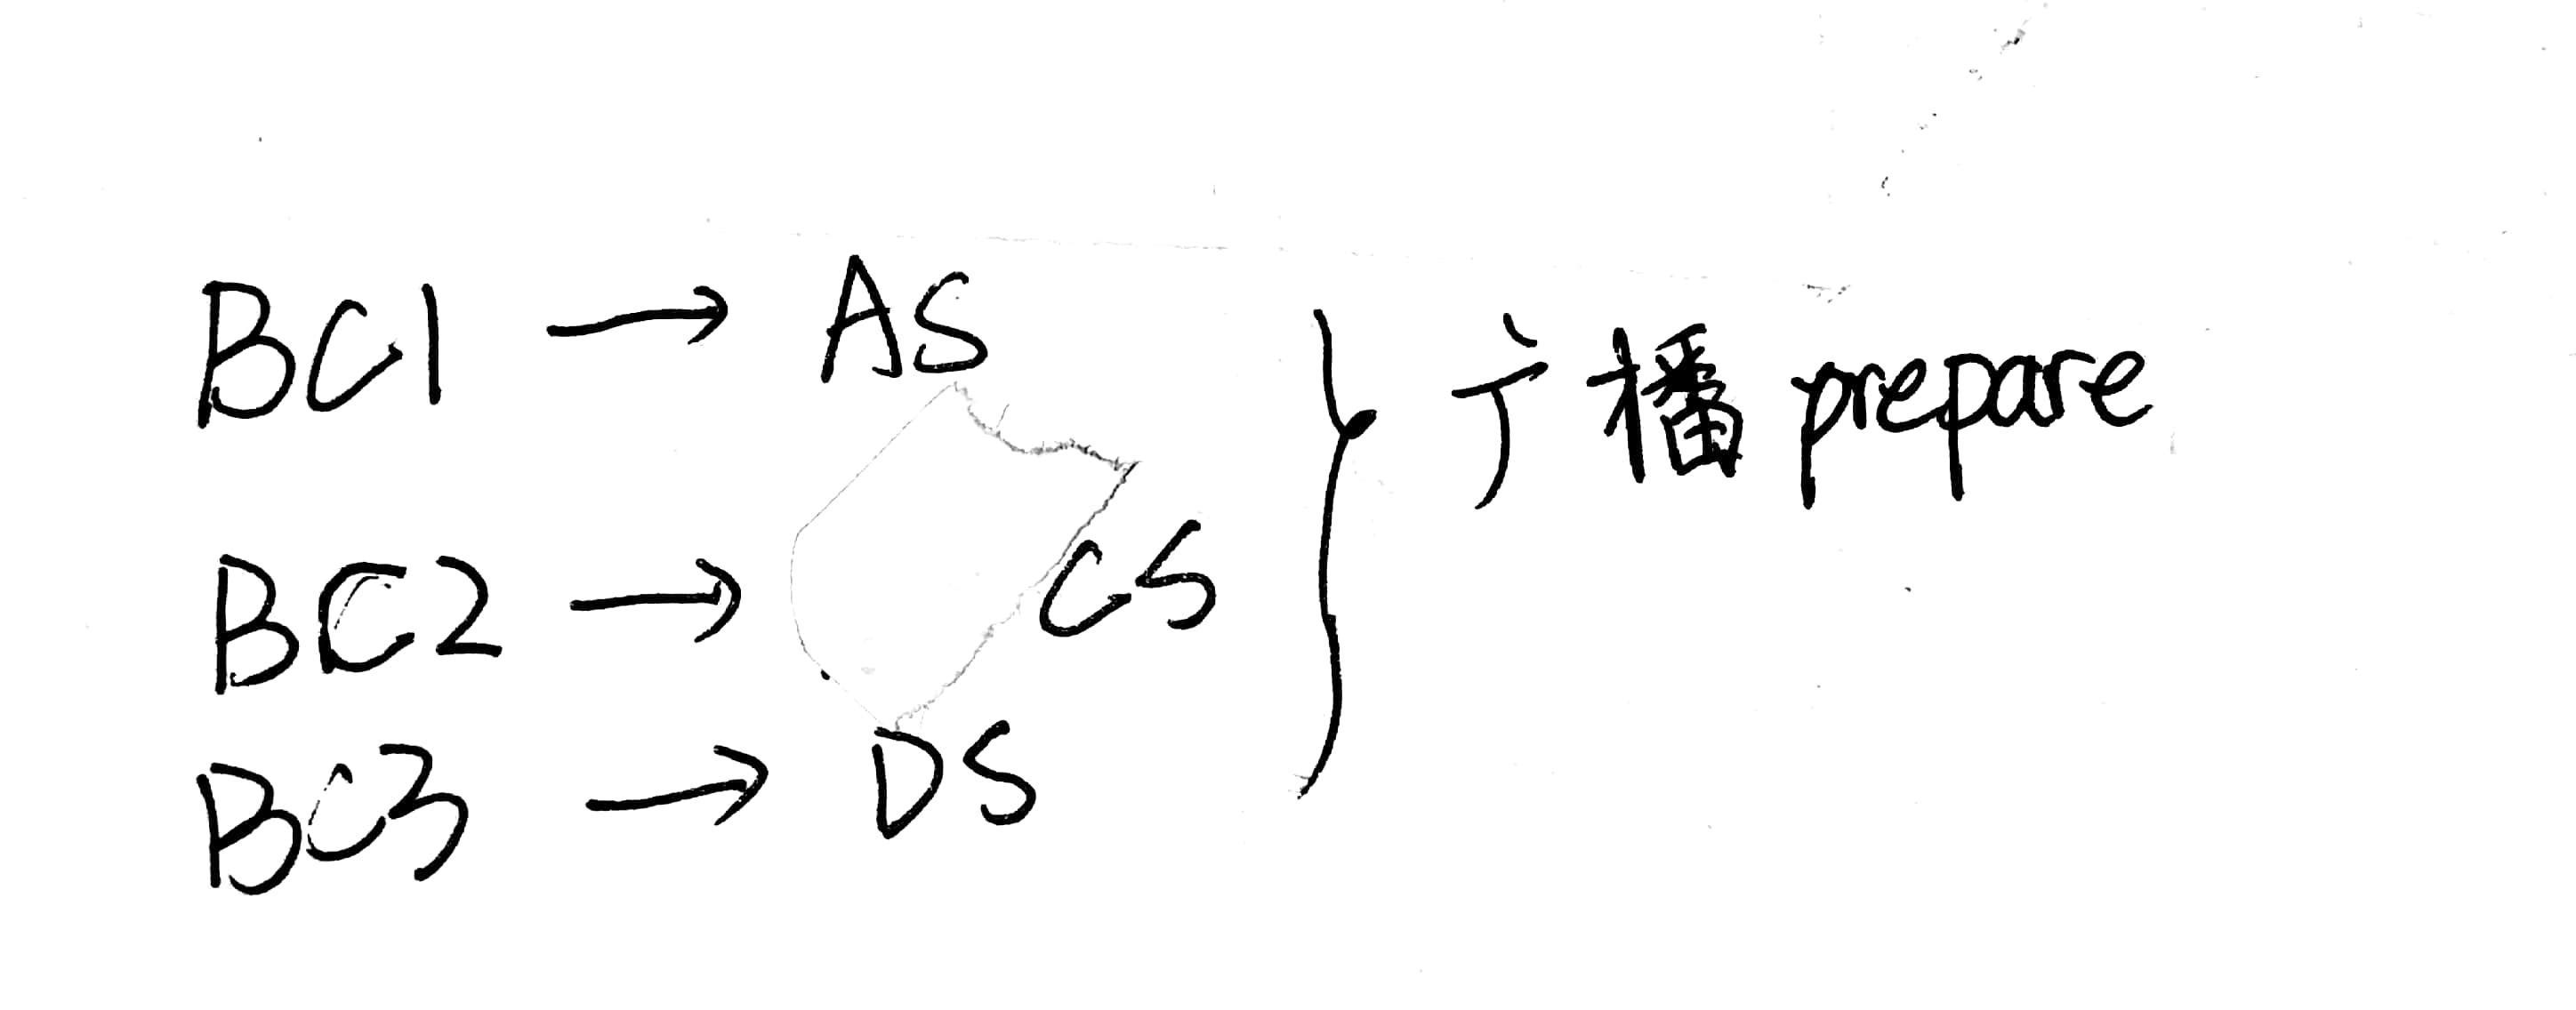 BC1 → AS
BC2 → CS
BC3 → DS
} 广播 prepare